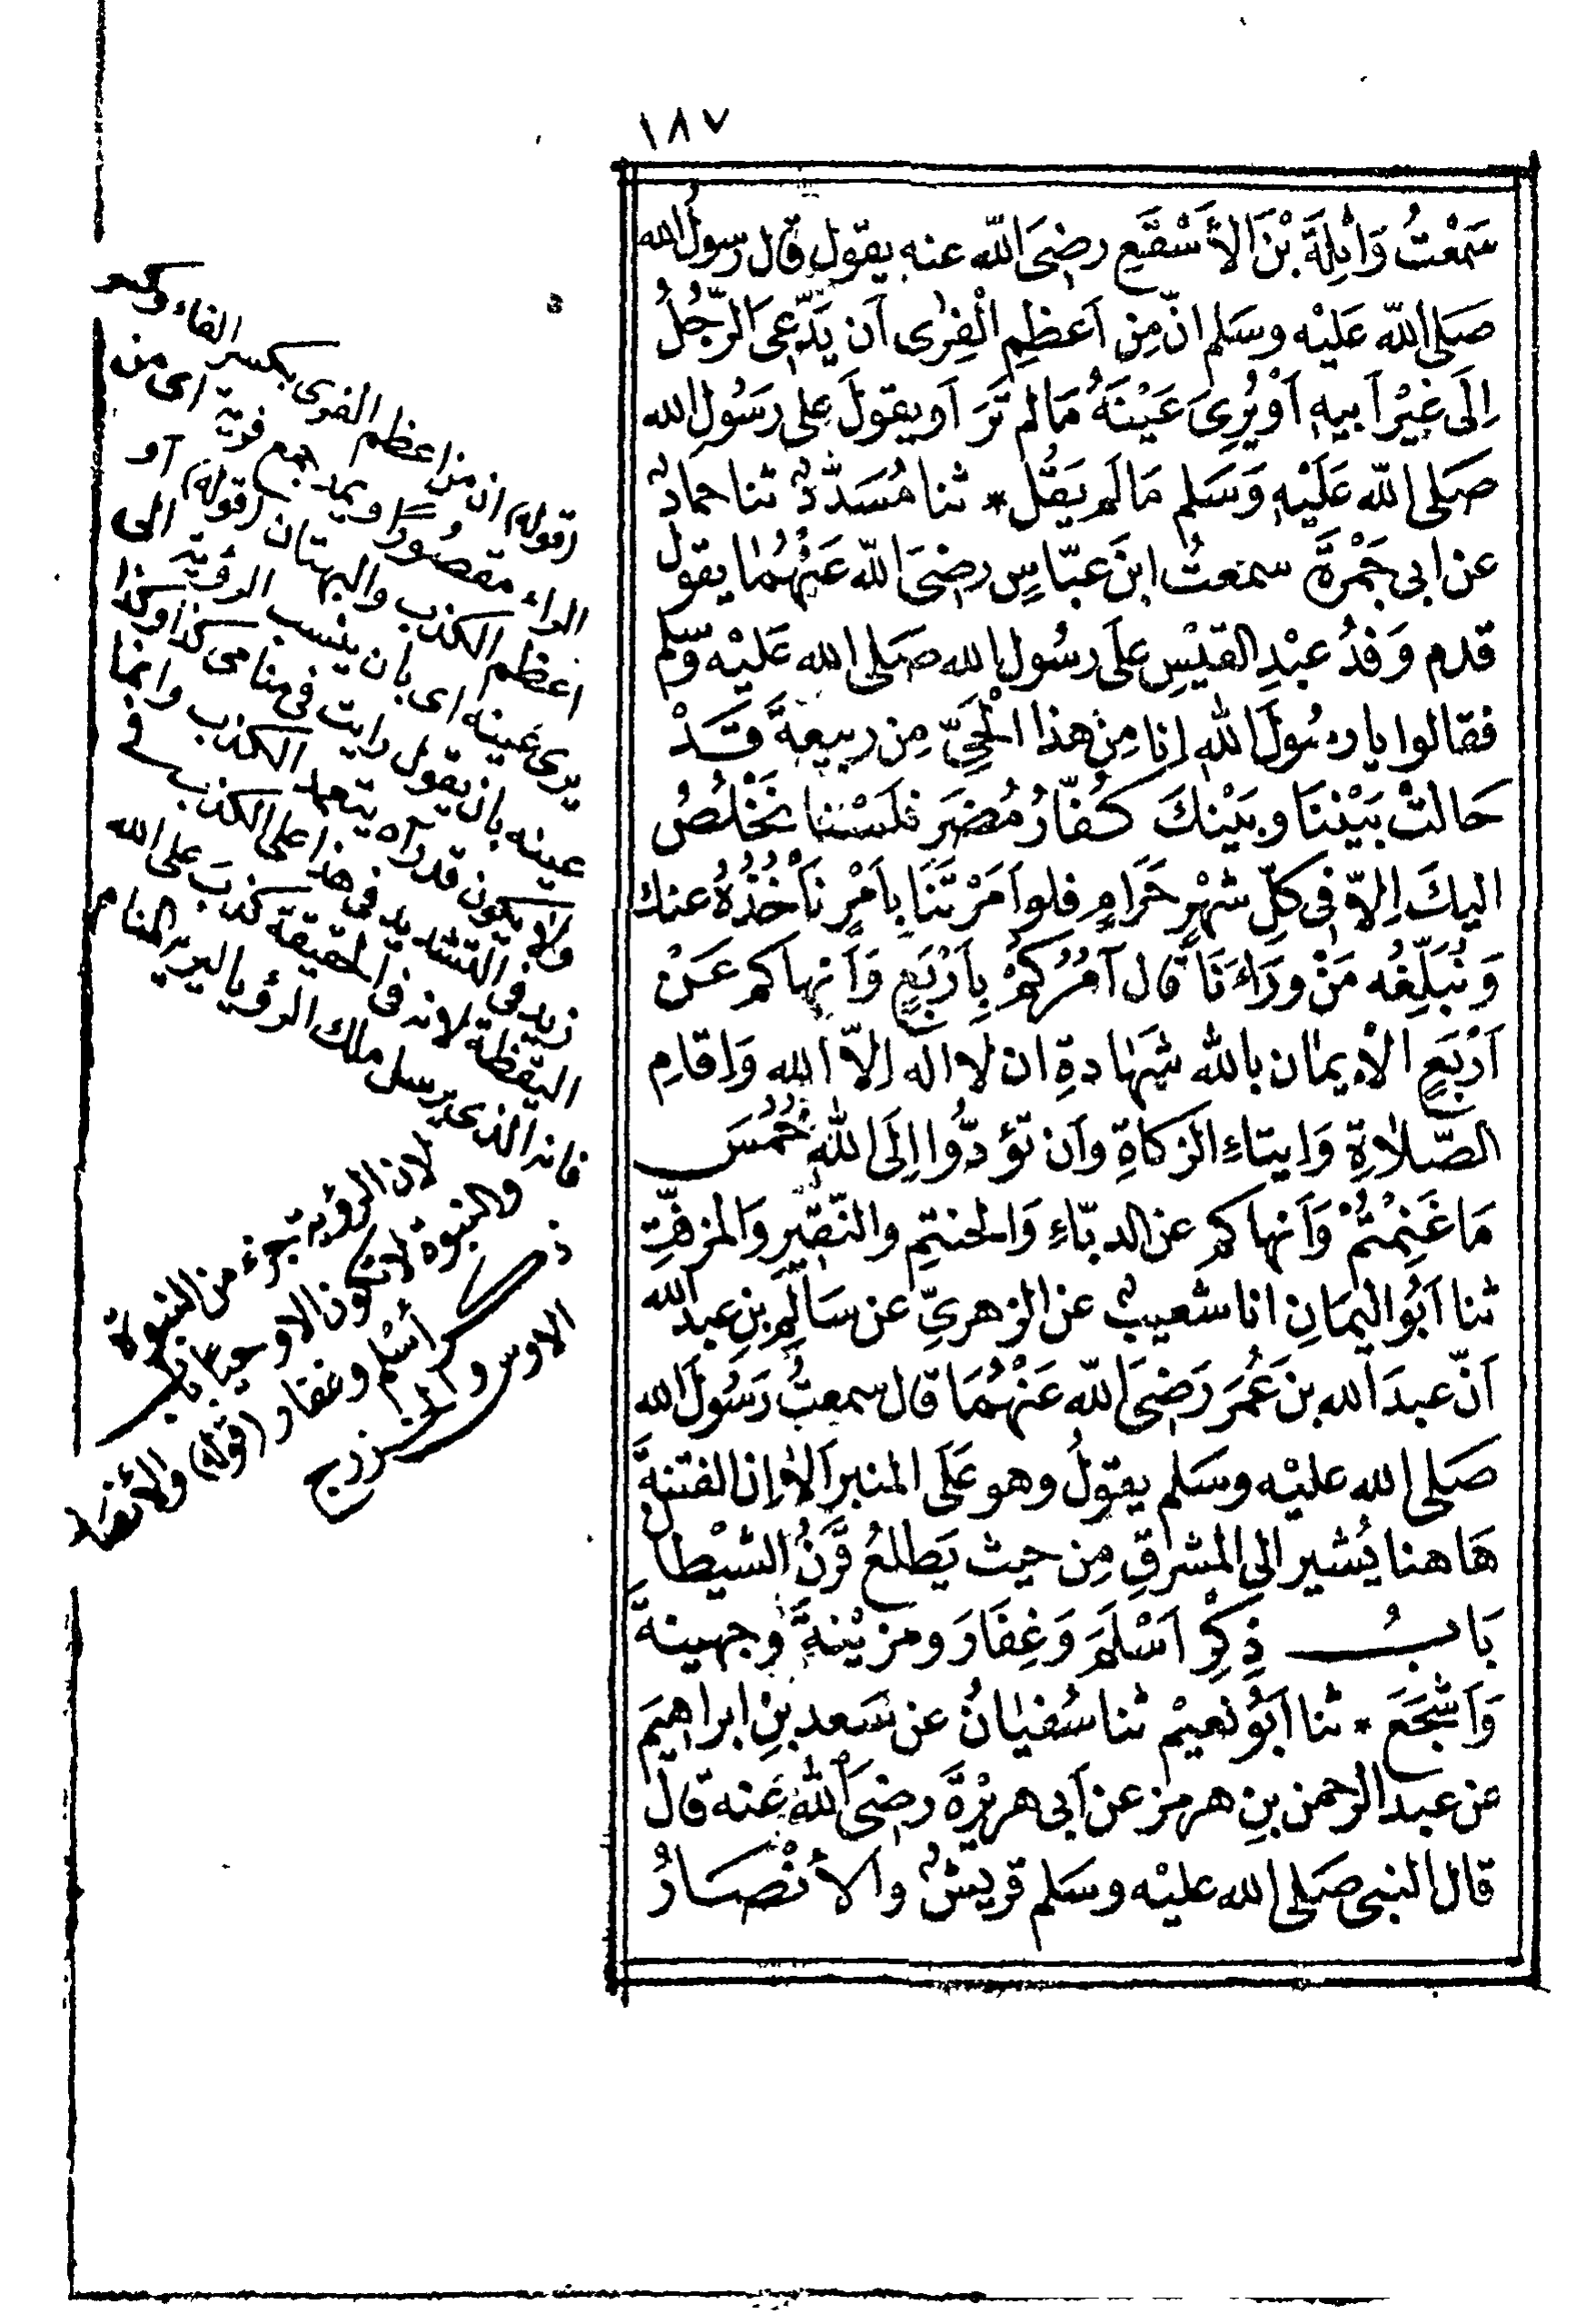 ١٨٧
سَمِعْتُ وَاثِلَةَ بْنَ الأَسْقَعِ رضِىَ اللّه عنه يقول قال رسولُ الله
صَلى اللّه عَلَيْه وسَلم انّ مِن اَعظِمِ الْفِرٰى اَن يَدَّعِىَ الرَّجُلُ
اِلَى غَيْرِ اَبيهِ اَوْ يُرِىَ عَيْنَهُ مَا لم تَرَ اَو يقولَ على رسَوُلِ الله
صَلى اللّه عَلَيْهِ وَسَلم مَا لَم يَقُل * ثنا مُسَدَّدٌ ثنا حمادٌ
عن ابى جَمْرَةَ سمعتُ ابنَ عبّاسٍ رضِىَ اللّه عَنْهُمٰا يقول
قدم وَفدُ عبْدِ القيْسِ علَى رسُولِ الله صَلى الله عَليْه وسّلم
فقالوا يا رسُولَ الله اِنا مِن هذا الْحَىِّ مِن ربيعةَ قَدْ
حَالتْ بَيْنَنَا وبَيْنكَ كفّارُ مُضَرَ فلَسْنا نَخْلُصُ
اليكَ اِلاّ فى كلِّ شهْرٍ حَرَامٍ فلو اَمَرْتَنَا بِاَمْرٍ نَأْخُذُهُ عنك
وَنُبَلِّغُه مَنْ ورَاءَنَا قال آمُرُكمُ بِاَرْبَعٍ وَاَنهاكم عَنْ
اَرْبَعٍ الاْيمٰان بالله شَهٰادةِ ان لا اله اِلاّ الله وَاِقامِ
الصّلاةِ وَايتاءِ الزكاةِ واَن تؤدُّوا اِلَى الله خُمُسَ
مَا غَنِمْتُمْ وَاَنهاكم عن الدبّاءِ وَالحنتمِ والنّقيرِ وَالمزفّتِ
ثنا اَبُو اليمَانِ انا شعيبٌ عن الزهرىِّ عن سَالمِ بنِ عبدِ الله
اَنّ عبدَ الله بنَ عُمَرَ رَضِىَ اللّه عَنْهُمَا قال سمعتُ رَسُولَ الله
صَلى الله عليْه وسَلم يقولُ وهو عَلَى المنبر اَلا اِن الفتنةَ
هَاهنا يُشير الى المشرقِ مِن حيث يَطلعُ قَرنُ الشيْطان
بَابُ ذِكْرِ اَسْلَمَ وَغِفَارَ ومزيْنةَ وجهينةَ
وَاَشْجَعَ * ثنا اَبُو نعيْم ثنا سُفيٰانُ عن سَعد بنِ ابراهيمَ
عن عبد الرحمن بنِ هرمز عن اَبى هريْرةَ رضىَ اللهُ عَنه قال
قال النبى صَلى الله عليْه وسَلم قريشٌ والأنْصَارُ
(قوله) ان من اعظم الفرى بكسر الفاء وفتح
الراء مقصورًا ويمد جمع فرية اى من
اعظم الكذب والبهتان (قوله) او
يرى عينه اى بان ينسب الرؤية الى
عينه بان يقول رايت فى منامى كذا وكذا
ولا يكون قد رآه يتعمد الكذب وانما
زيد فى التشديد فى هذا على الكذب فى
اليقظة لانه فى الحقيقة كذب على الله
فانه الذى يرسل ملك الرؤيا ليريه المنام
لان الرؤية جزء من النبوة
والنبوة لا تكون الا وحيا باب
ذكر أسلم وغفار (قوله) والأنصار
الاوس والخزرج